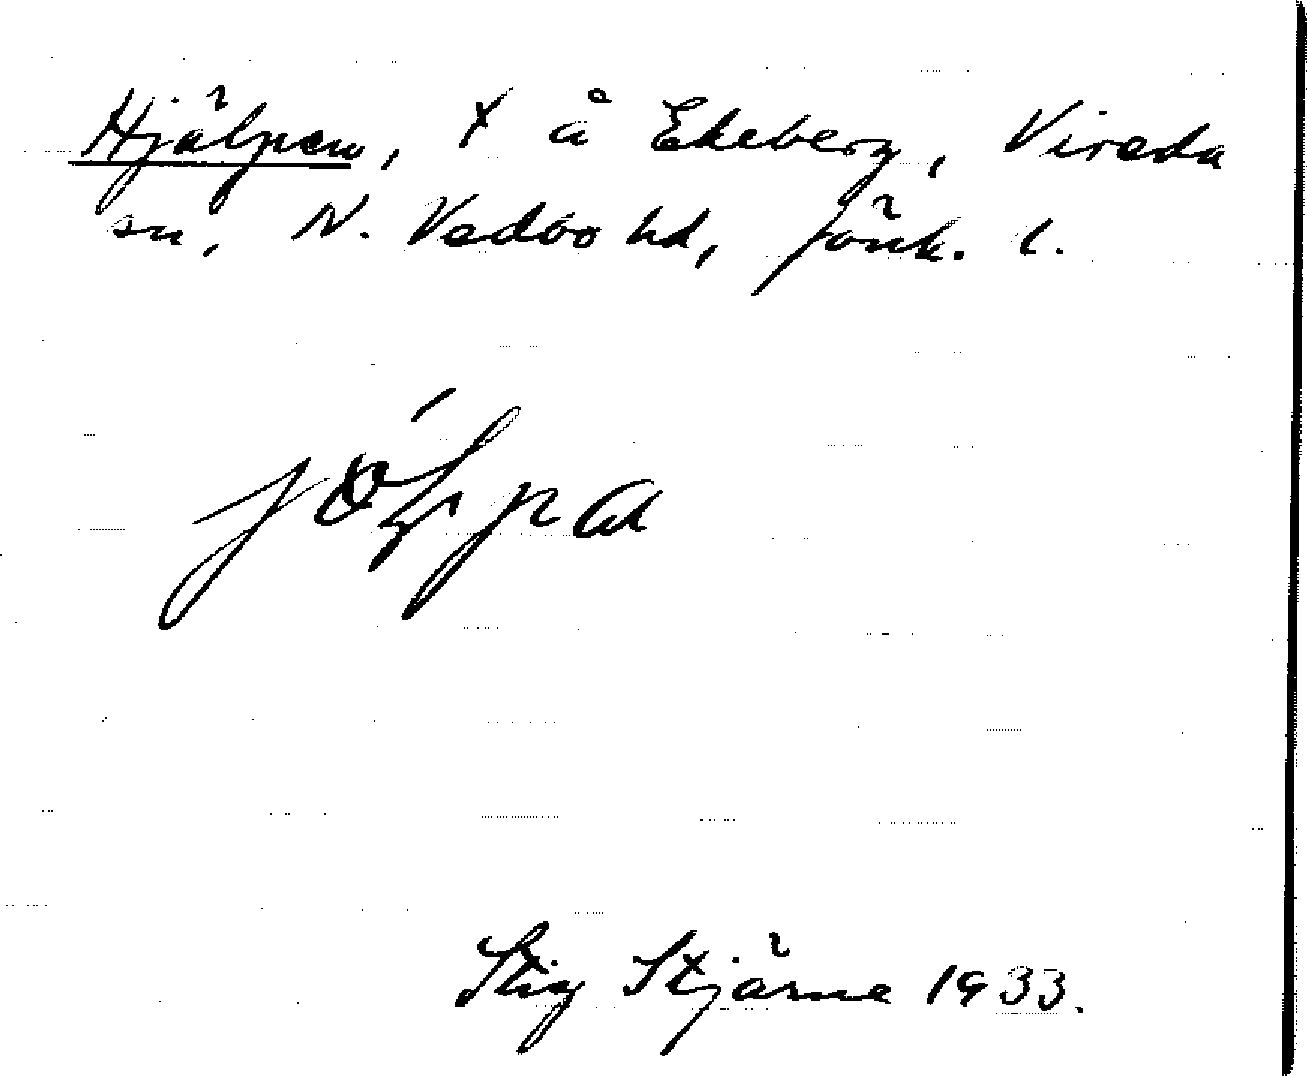 Hjälpen, x å Ekeberg, Vireda
sn, N. Vedbo hd, Jönk. l.
Stig Stjärne 1933.